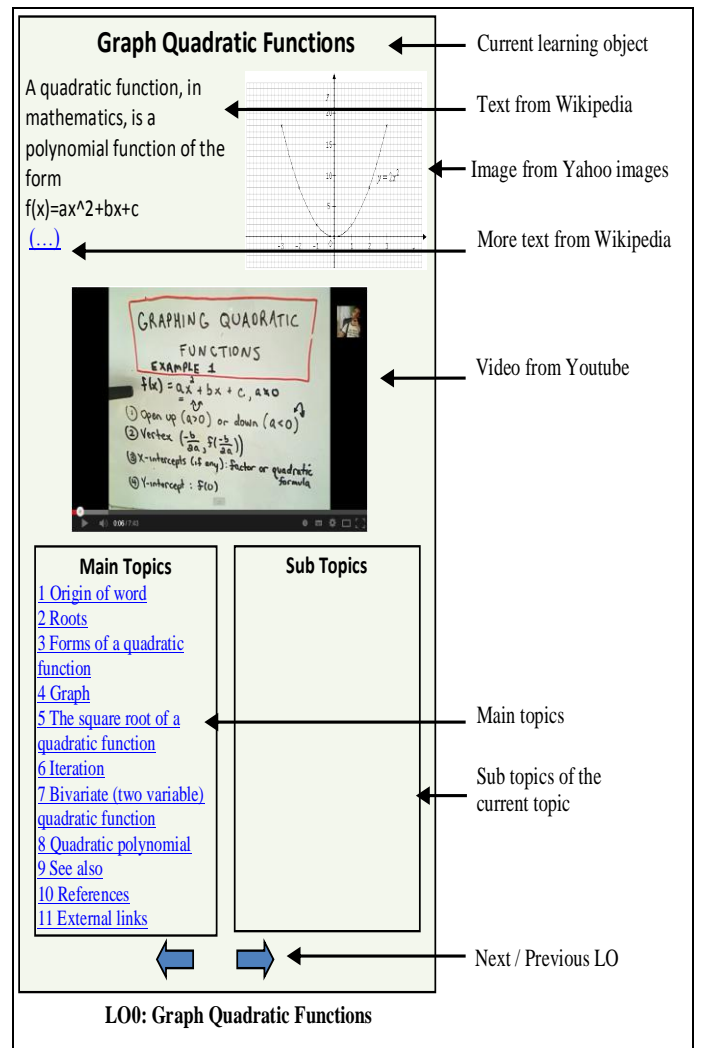 Graph Quadratic Functions
Current learning object
A quadratic function, in
mathematics, is a
polynomial function of the
form
f(x)=ax^2+bx+c
(...)
Text from Wikipedia
Image from Yahoo images
More text from Wikipedia
y
20
15
10
5
-3 -2 -1 0 1 2 3
y=2x²
GRAPHING QUADRATIC
FUNCTIONS
EXAMPLE 1
f(x) = ax² + bx + c, a≠0
① Open up (a>0) or down (a<0)
② Vertex (-b/2a, f(-b/2a))
③ X-intercepts (if any): factor or quadratic
formula
④ Y-intercept : f(0)
0:06 / 7:43
Video from Youtube
Main Topics
1 Origin of word
2 Roots
3 Forms of a quadratic
function
4 Graph
5 The square root of a
quadratic function
6 Iteration
7 Bivariate (two variable)
quadratic function
8 Quadratic polynomial
9 See also
10 References
11 External links
Sub Topics
Main topics
Sub topics of the
current topic
Next / Previous LO
LO0: Graph Quadratic Functions